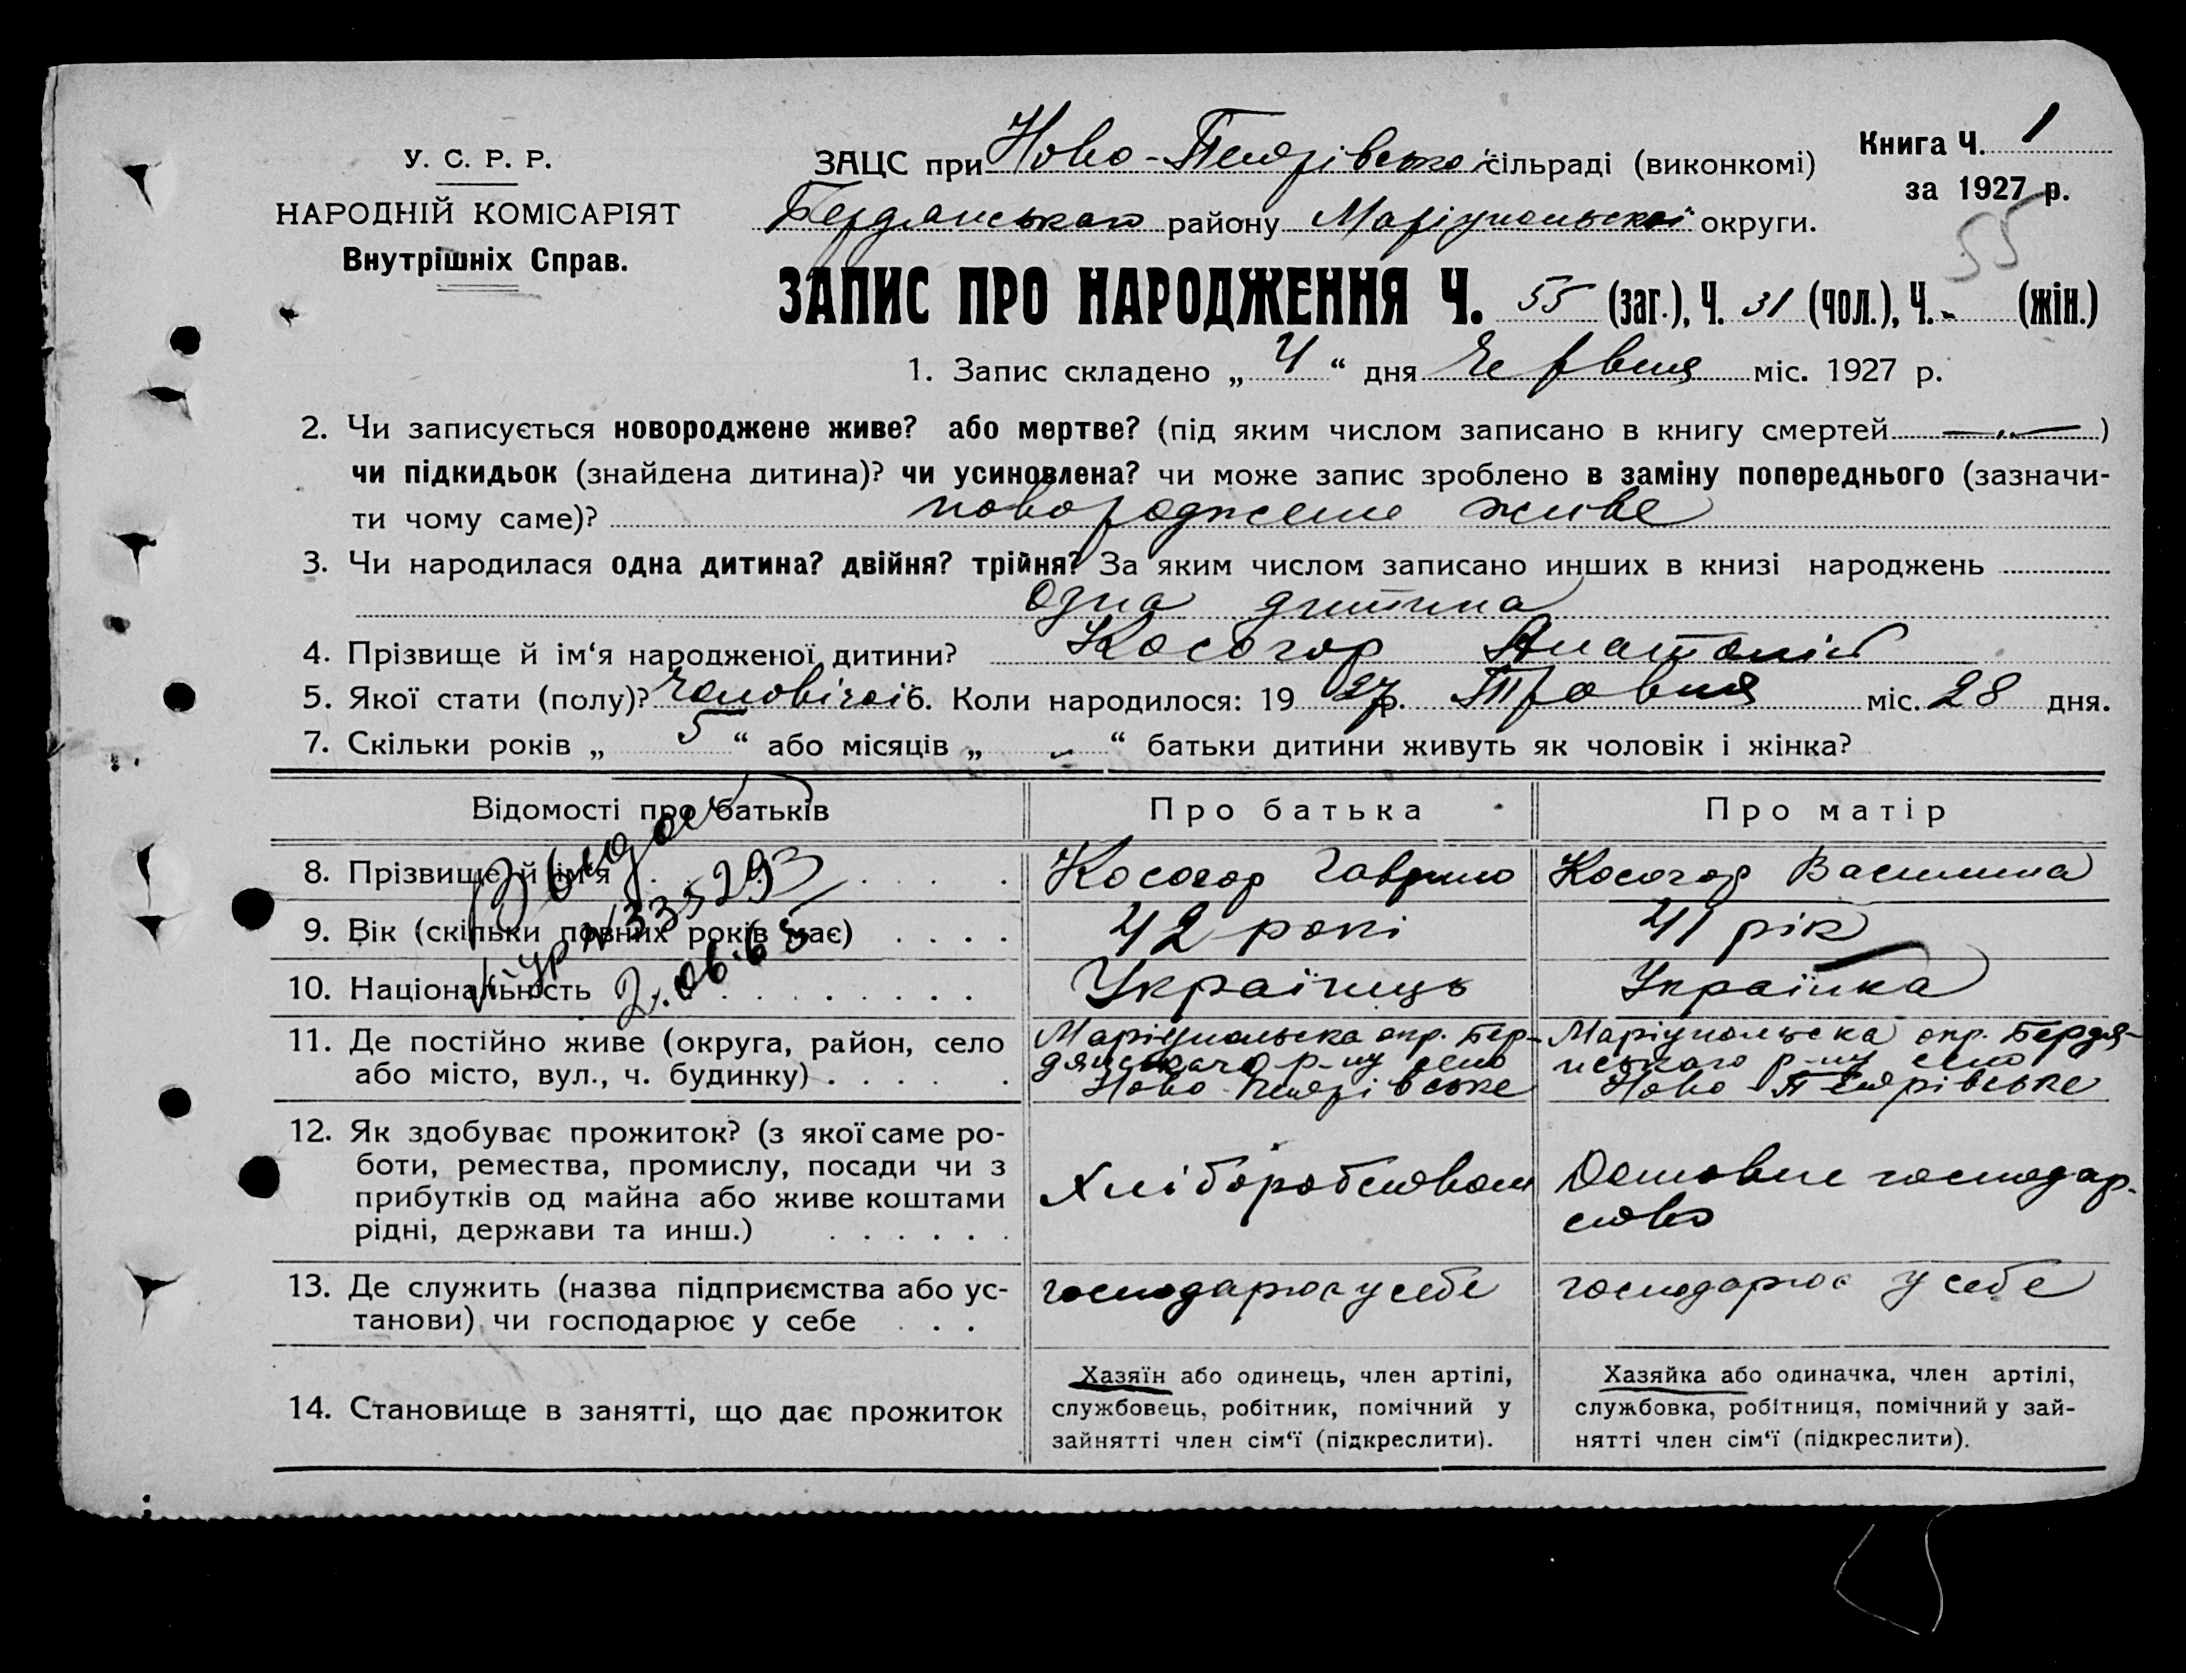 У. С. Р. Р.
НАРОДНІЙ КОМІСАРІЯТ
Внутрішніх Справ.
Книга Ч. 1
за 1927 р.
55
ЗАЦС при Ново-Петрівської сільраді (виконкомі)
Бердянського району Маріупольської округи.
ЗАПИС ПРО НАРОДЖЕННЯ Ч. 55 (заг.), Ч. 31 (чол.), Ч. - (жін.)
1. Запис складено „ 4 “ дня Червня міс. 1927 р.
2. Чи записується новороджене живе? або мертве? (під яким числом записано в книгу смертей — „ —)
чи підкидьок (знайдена дитина)? чи усиновлена? чи може запис зроблено в заміну попереднього (зазначи-
ти чому саме)? новороджене живе
3. Чи народилася одна дитина? двійня? трійня? За яким числом записано инших в книзі народжень
одна дитина
4. Прізвище й ім‘я народженої дитини? Косогор Анатолій
5. Якої стати (полу)? Чоловічої 6. Коли народилося: 19 27 р. Травня міс. 28 дня.
7. Скільки років „ 5 “ або місяців „ - “ батьки дитини живуть як чоловік і жінка?
Відомості про батьків Про батька Про матір
8. Прізвище й ім‘я . . . . Косогор Гаврило Косогор Василина
9. Вік (скільки повних років має) . . . . 42 рокі 41 рік
10. Національність . . . . . . . . Українць Українка
11. Де постійно живе (округа, район, село
або місто, вул., ч. будинку) . . . . .
Маріупольска окр. Бер-
дянського р-ну село
Ново-Петрівське
Маріупольска окр. Бердя-
нського р-ну село
Ново-Петрівське
12. Як здобуває прожиток? (з якої саме ро-
боти, ремества, промислу, посади чи з
прибутків од майна або живе коштами
рідні, держави та инш.) . . . . . .
Хліборобством
Домовне господар-
ство
13. Де служить (назва підприємства або ус-
танови) чи господарює у себе . . .
господарює у себе
господарює у себе
14. Становище в занятті, що дає прожиток
Хазяїн або одинець, член артілі,
службовець, робітник, помічний у
зайнятті член сім‘ї (підкреслити).
Хазяйка або одиначка, член артілі,
службовка, робітниця, помічний у зай-
нятті член сім‘ї (підкреслити).